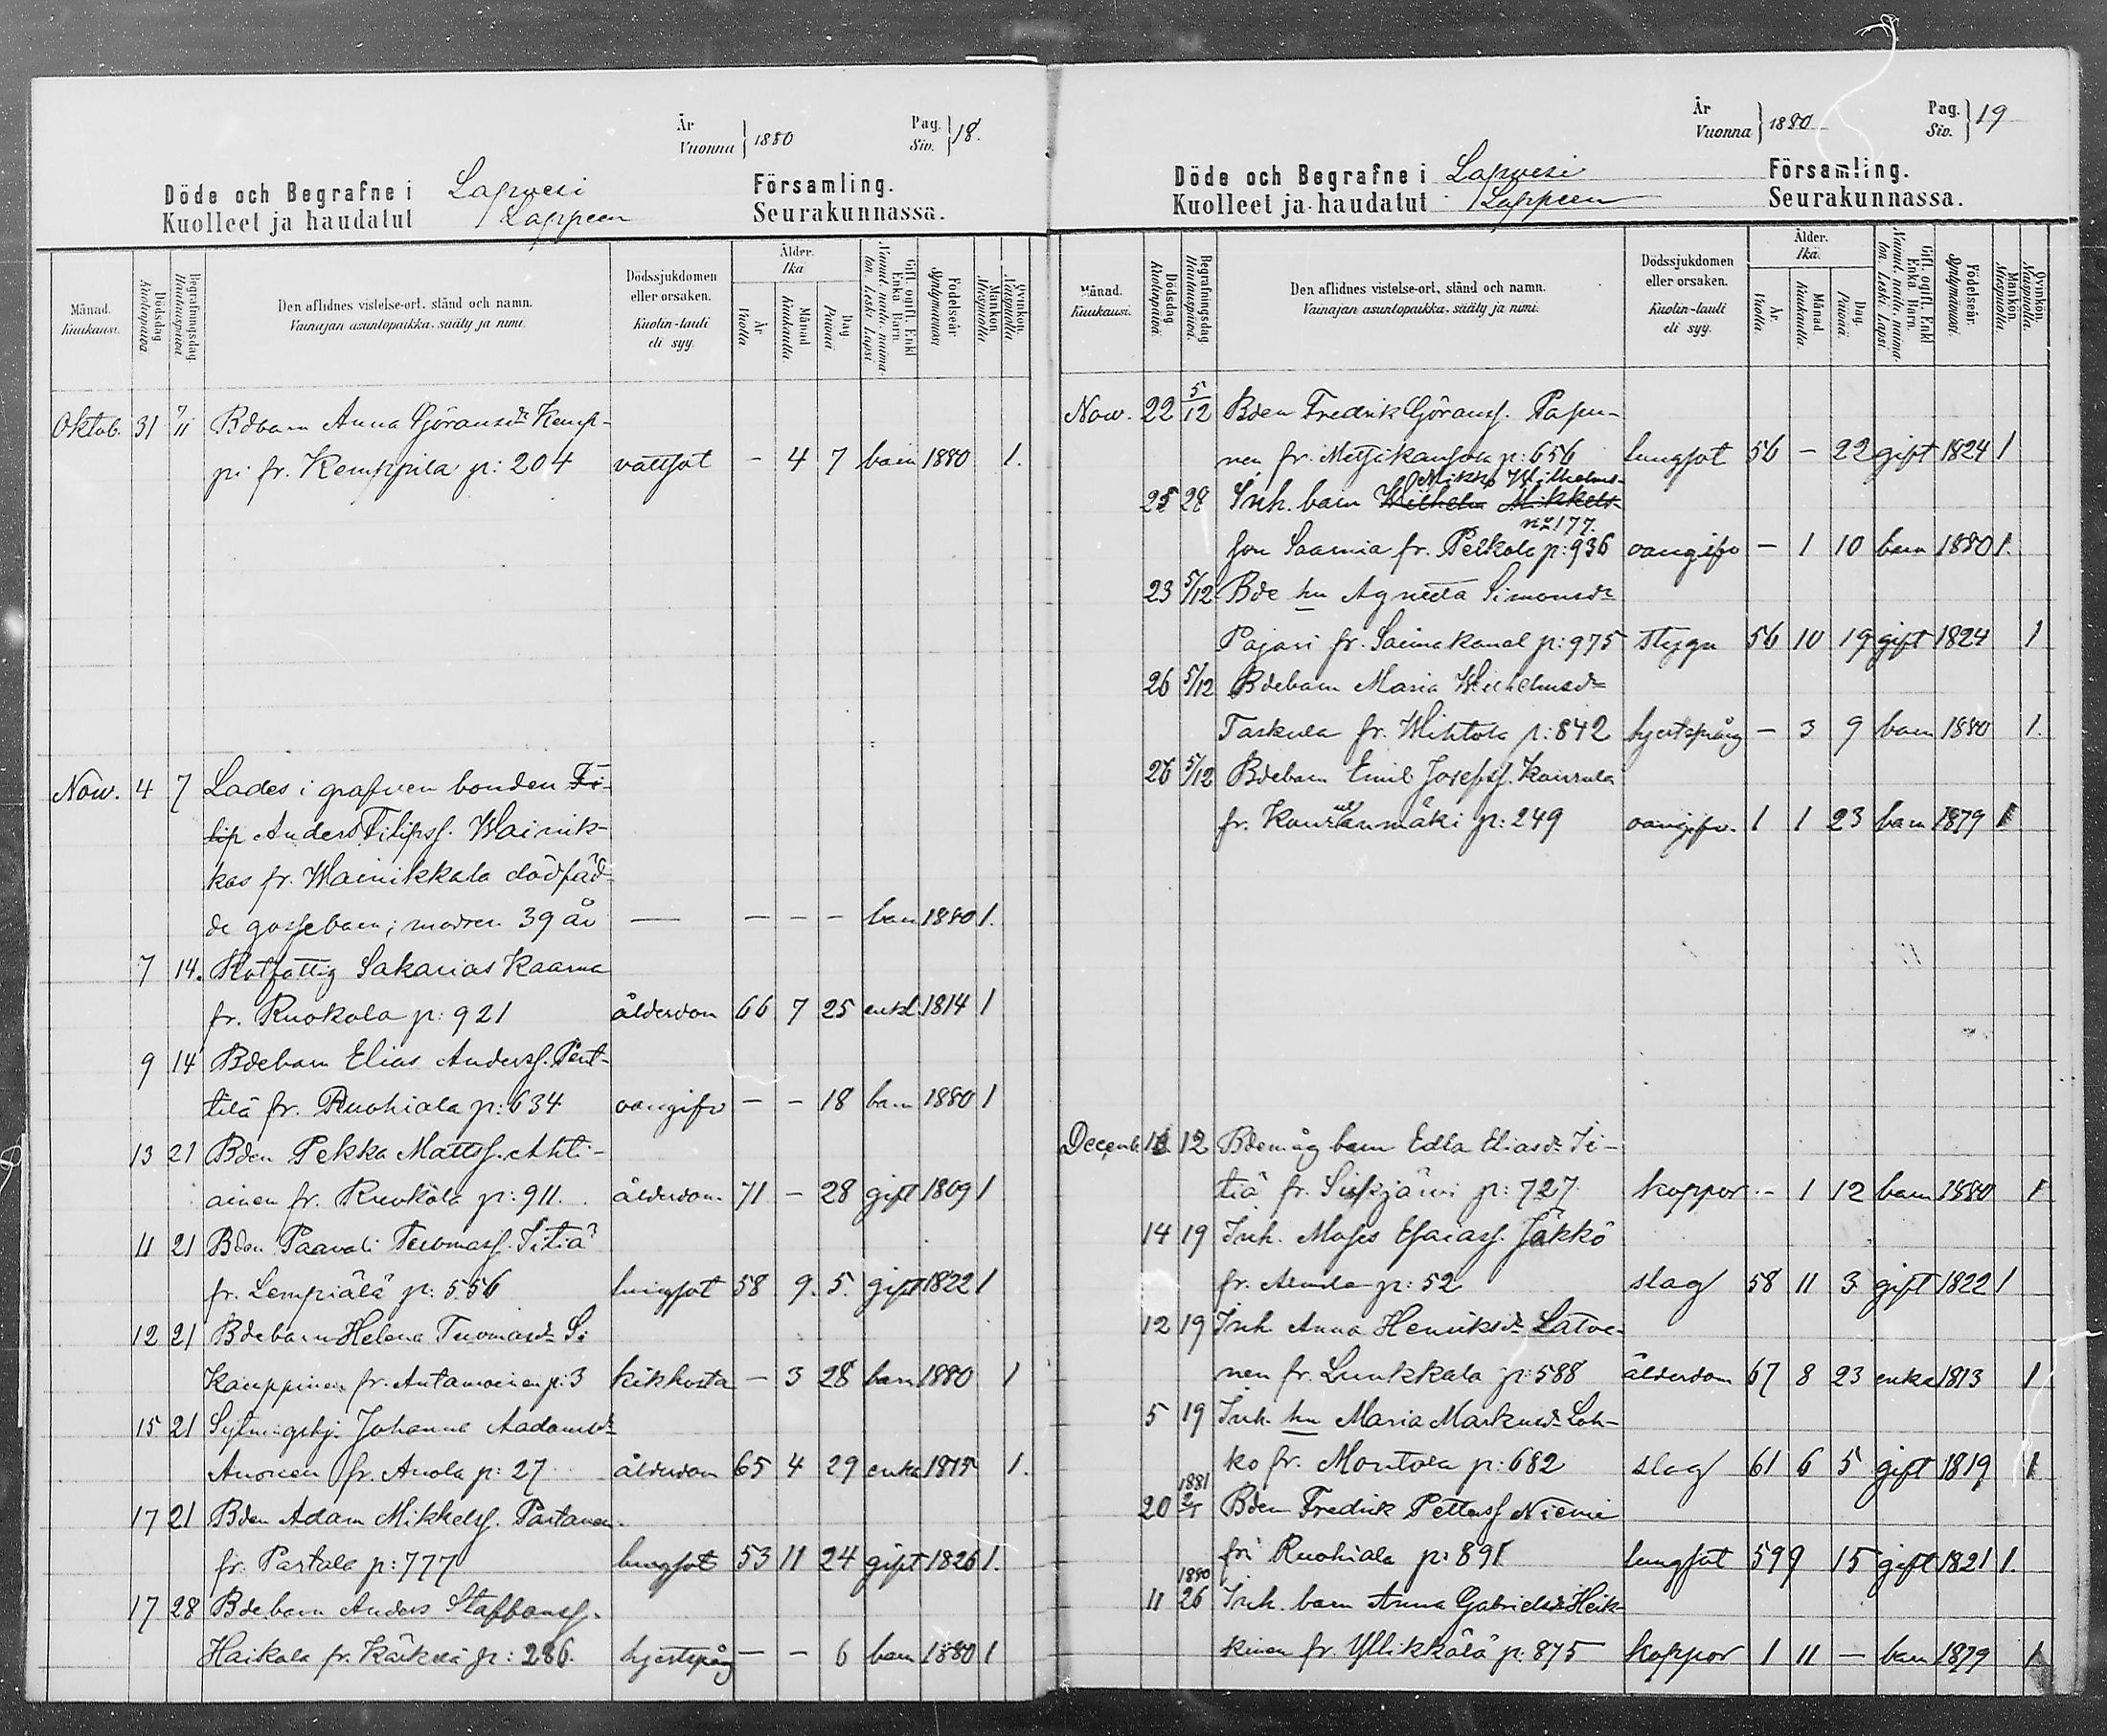 År
Vuonna } 1880
Pag.
Siv. } 18.
Döde och Begrafne i Lapvesi Församling.
Kuolleet ja haudatut Lappeen Seurakunnassa.
Månad. Kuukausi.
Dödsdag Kuolinpäivä
Begrafningsdag. Hautauspäivä.
Den aflidnes vistelse-ort, stånd och namn.
Vainajan asuntopaikka, sääty ja nimi.
Dödssjukdomen eller orsaken.
Kuolin-tauti eli syy.
Ålder.
Ikä
År Vuotta
Månad Kuukautta.
Dag Päivää.
Gift, ogift, Enkl. Enka, Barn.
Födelseår. Syntymävuosi
Mankön. Miespuolia
Qvinkön. Naispuolia.
Oktob. 31 7/11 Bdbarn Anna Göransdr Kemp-
pi fr. Kemppila p: 204 vattsot – 4 7 barn 1880 1.
Nov. 4 7 Lades i grafven bonden Fi-
lip Anders Filipss. Wainik-
kas fr. Wainikkala dödföd-
de gossebarn; modren 39 år — – – – barn 1880 1.
7 14. Rotfattig Sakarias Kaarna
fr. Ruokola p: 921 ålderdom 66 7 25 enkl. 1814 1
9 14 Bdebarn Elias Anderss. Pent-
tilä fr. Ruohiala p: 634 oangifv – – 18 barn 1880 1
13 21 Bden Pekka Mattss. Ahti-
ainen fr. Ruokola p: 911. ålderdom. 71 – 28 gift 1809 1
11 21 Bden Paavali Tuomass. Sitiä
fr. Lempiälä p: 556 lungsot 58 9. 5. gift 1822 1
12 21 Bdebarn Helena Tuomasdr Si
Kauppinen fr. Antamoinen p: 3 kikhosta – 3 28 barn 1880 1
15 21 Sytningshj. Johanna Aadamsdr
Anonen fr. Anola p: 27 ålderdom 65 4 29 enka 1815 1.
17 21 Bden Adam Mikkelss. Partanen.
fr. Partala p: 777 lungsot 53 11 24 gift 1826 1.
17 28 Bdebarn Anders Staffanss.
Haikala fr. Kärkeä p: 286. hjertspång – – 6 barn 1880 1
År
Vuonna } 1880
Pag.
Siv. } 19
Döde och Begrafne i Lapvesi Församling.
Kuolleet ja haudatut Lappeen Seurakunnassa.
Månad. Kuukausi.
Dödsdag Kuolinpäivä.
Begrafningsdag. Hautauspäivä.
Den aflidnes vistelse-ort, stånd och namn.
Vainajan asuntopaikka, sääty ja nimi.
Dödssjukdomen eller orsaken.
Kuolin-tauti eli syy.
Ålder.
Ikä.
År. Vuotta
Månad Kuukautta.
Dag. Päivää.
Gift, ogift, Enkl. Enka, Barn.
Födelseår. Syntymävuosi.
Mankön. Miespuolia.
Qvinkön. Naispuolia.
Nov. 22 5/12 Bden Fredrik Göranss. Papu-
nen fr. Mettsäkansola p: 656 lungsot 56 – 22 gift 1824 1
Mikko Wilhelms-
25 28 Inh. barn Wilhelm Mikkels-
no 177.
son Saamia fr. Pelkola p: 936 oangifv – 1 10 barn 1880 1.
23 5/12 Bde hu Agneta Simonsdr
Pajari fr. Saimakanal p: 975 stygn 56 10 19 gift 1824 1
26 5/12 Bdebarn Maria Wilhelmsdr
Taskula fr. Wihtola p: 842 hjertspång – 3 9 barn 1880 1.
26 5/12 Bdebarn Emil Josefss. Kourula
fr. Kourulanmäki p: 249 oangifv. 1 1 23 barn 1879 1
Decemb. 12 Bdemåg barn Edla Eliasdr Si-
tiä fr. Suokjärvi p: 727 koppor – 1 12 barn 1880 1
14 19 Inh. Moses Esaiass. Jäkkö
fr. p: 52 slag 58 11 3 gift 1822 1
12 19 Inh Anna Henriksdr Latva-
nen fr. Luukkala p: 588 ålderdom 67 8 23 enka 1813 1
5 19 Inh. hu Maria Markusdr Loh-
ko fr. Montola p: 682 slag 61 6 5 gift 1819 1
1881
20 2/1 Bden Fredrik Petterss Niemi
fr. Ruohiala p: 891 lungsot 59 9 15 gift 1821 1.
1880
11 26 Inh. barn Anna Gabrielsdr Heik-
kinen fr. Yllikkälä p: 875 koppor 1 11 – barn 1879 1